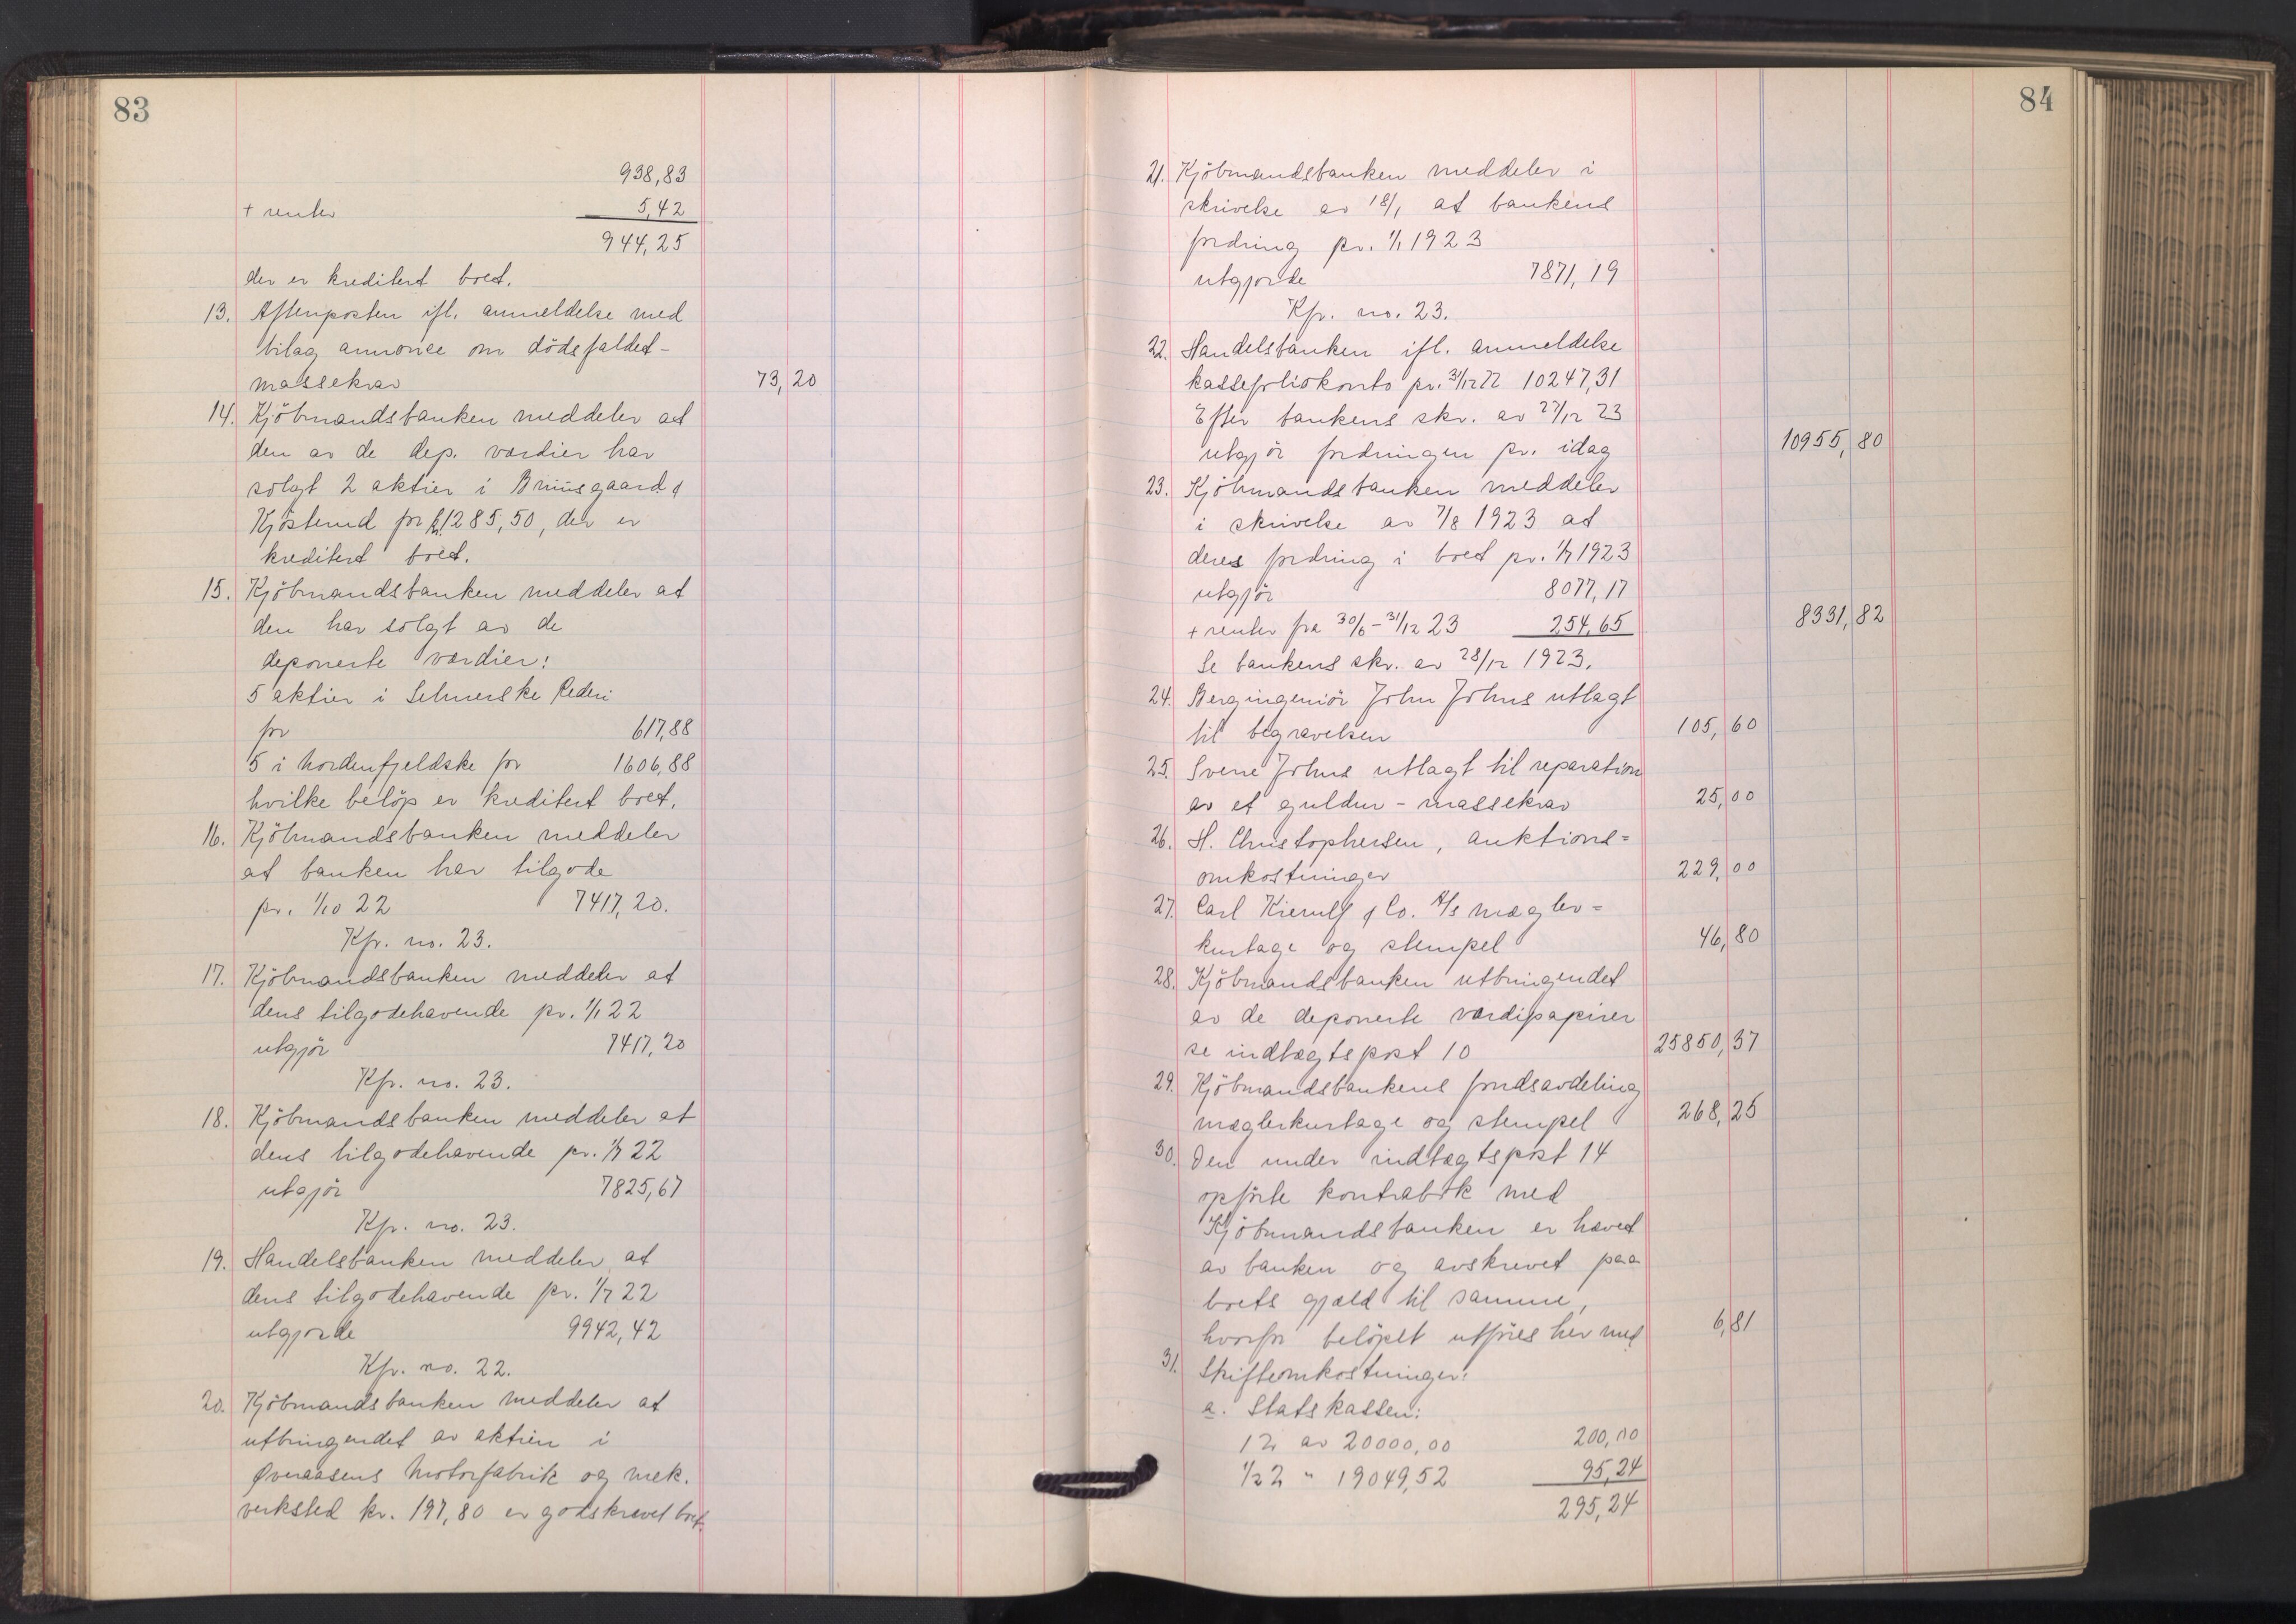 83
938,83
+ renter 5,42
944,25
der er kreditert boet.
13. Aftenposten ifl. anmeldelse med
bilag annonce om dödsfaldet -
massekrav 73,20
14. Kjöbmandsbanken meddeler at
den av de dep. værdier har
solgt 2 aktier i Bruusgaard &
Kjösterud for kr. 1285,50, der er
kreditert boet.
15. Kjöbmandsbanken meddeler at
den har solgt av de
deponerte værdier:
5 aktier i Selmerske Rederi
for 617,88
5 i Nordenfjeldske for 1606,88
hvilke belöp er kreditert boet.
16. Kjöbmandsbanken meddeler
at banken har tilgode
pr. 1/10 22 7417,20.
Kfr. no. 23.
17. Kjöbmandsbanken meddeler at
dens tilgodehavende pr. 1/1 22
utgjör 7417,20
Kfr. no. 23.
18. Kjöbmandsbanken meddeler at
dens tilgodehavende pr. 1/7 22
utgjör 7825,67
Kfr. no. 23.
19. Handelsbanken meddeler at
dens tilgodehavende pr. 1/7 22
utgjorde 9942,42
Kfr. no. 22.
20. Kjöbmandsbanken meddeler at
utbringendet av aktien i
Øveraasens Motorfabrik og mek.
verksted kr. 197,80 er godskrevet boet.
84
21. Kjöbmandsbanken meddeler i
skrivelse av 18/1 at bankens
fordring pr. 1/1 1923
utgjorde 7871,19
Kfr. no. 23.
22. Handelsbanken ifl. anmeldelse
kassefoliokonto pr. 31/12 22 10247,31
Efter bankens skr. av 27/12 23
utgjör fordringen pr. idag 10955,80
23. Kjöbmandsbanken meddeler
i skrivelse av 7/8 1923 at
deres fordring i boet pr. 1/7 1923
utgjör 8077,17
+ renter fra 30/6 - 31/12 23 254,65 8331,82
Se bankens skr. av 28/12 1923.
24. Bergingeniör John Johns utlagt
til begravelsen 105,60
25. Sverre Johns utlagt til reparation
av et guldur - massekrav 25,00
26. H. Christophersen, auktions=
omkostninger 229,00
27. Carl Kierulf & Co. A/S mægler=
kurtage og stempel 46,80
28. Kjöbmandsbanken utbringendet
av de deponerte værdipapirer
se indtægtspost 10 25850,37
29. Kjöbmandsbankens fondsavdeling
mæglerkurtage og stempel 268,25
30. Den under indtægtspost 14
opförte kontrabok med
Kjöbmandsbanken er hævet
av banken og avskrevet paa
boets gjæld til samme,
hvorfor belöpet utföres her med 6,81
31. Skifteomkostninger:
a. Statskassen:
1 % av 20000,00 200,00
1/2 % " 19049,52 95,24
295,24